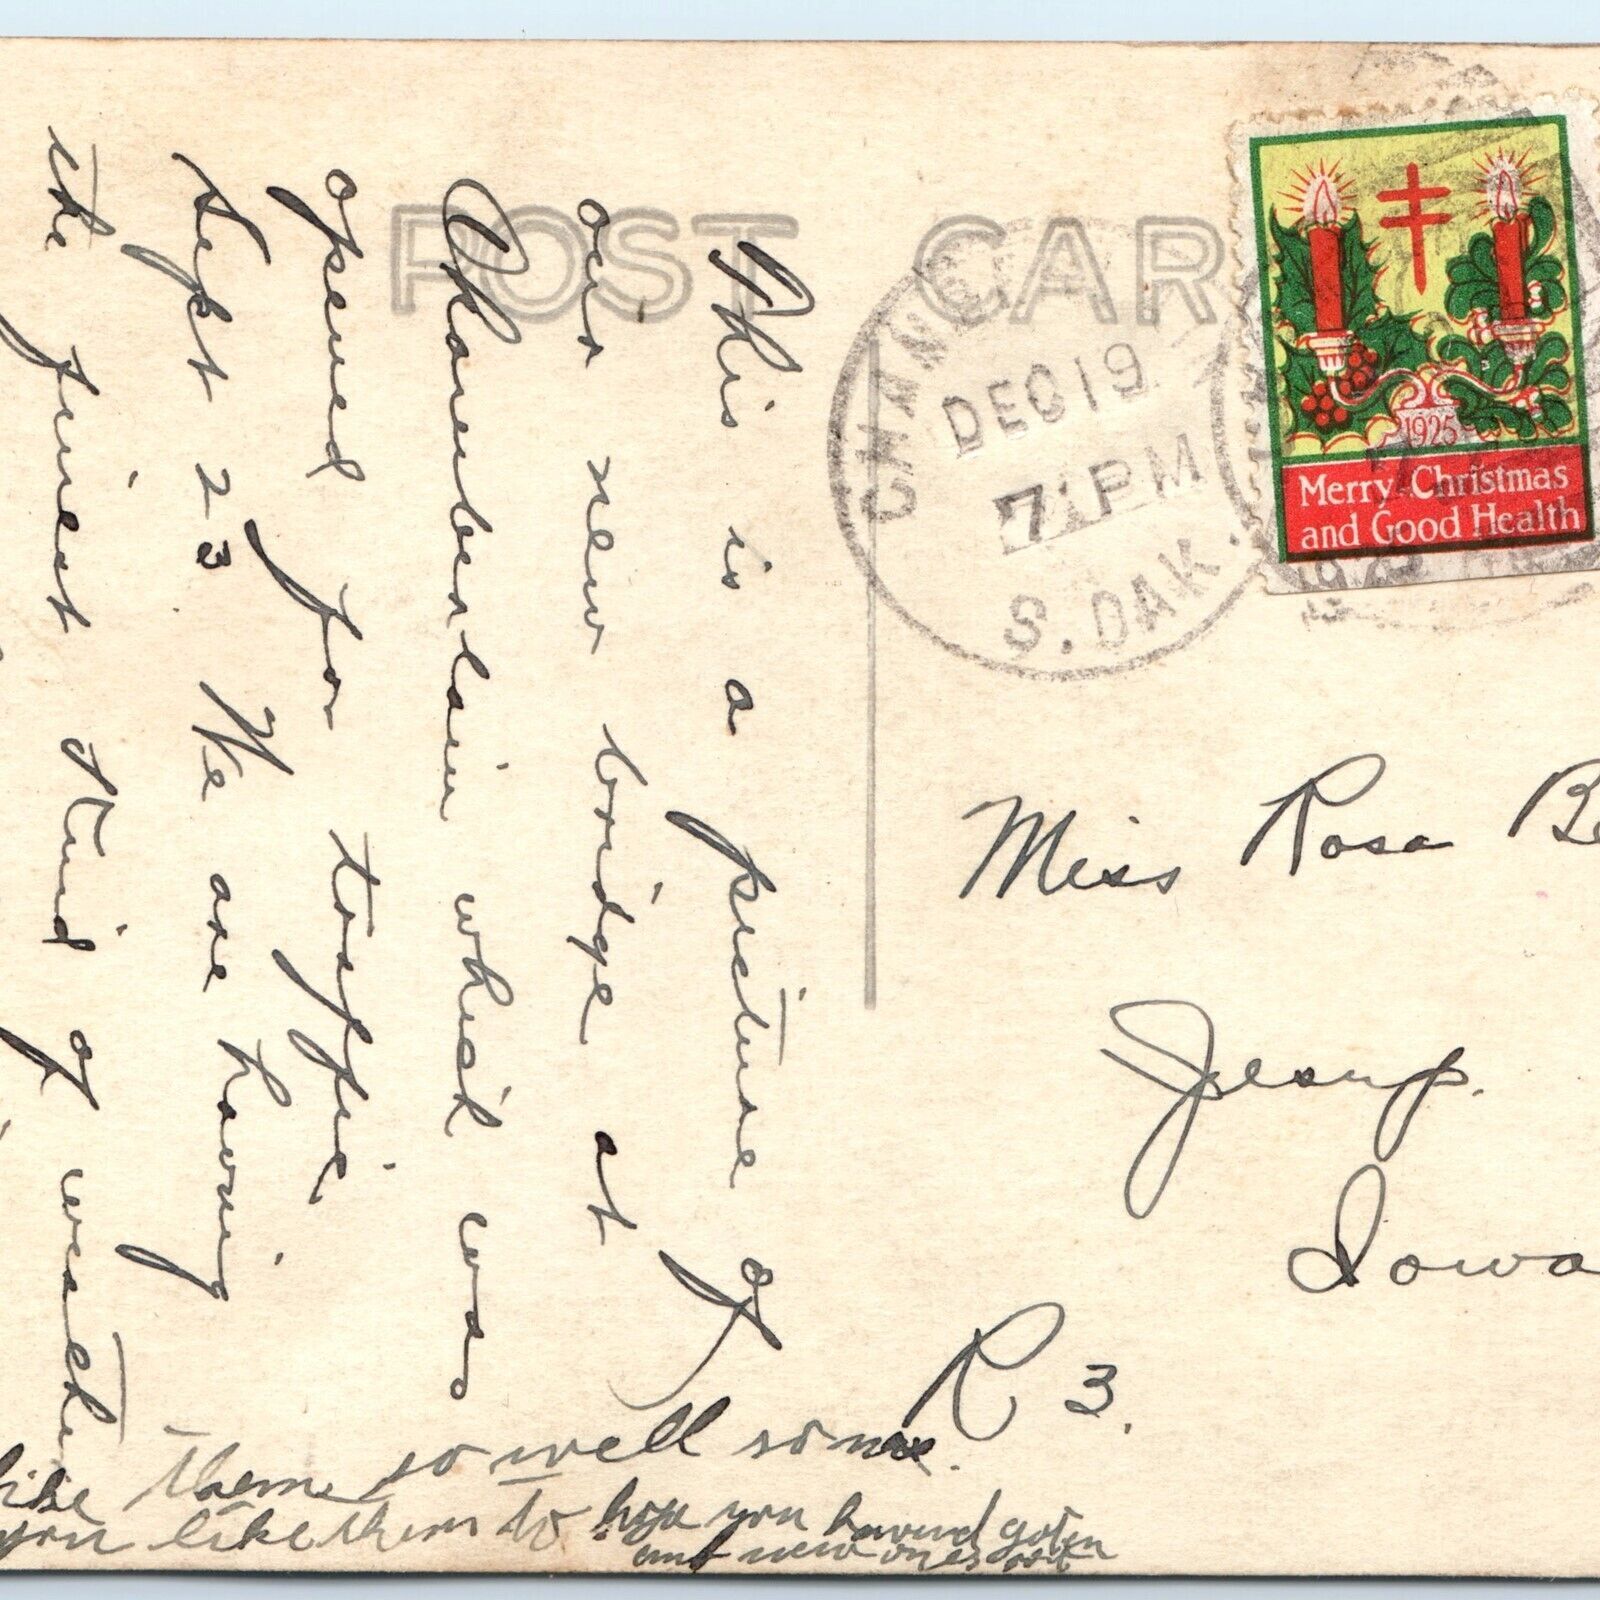 POST CAR
CHAN
DEC 19
7 PM
S. DAK.
1925
Merry Christmas
and Good Health
This is a picture of
our new bridge at
Chamberlain which was
opened for traffic
Sept 23 We are having
the finest kind of weather
Miss Rosa Be
Jesup.
Iowa
R 3.
like them so well some.
you like them to hope you havend goten
and new ones